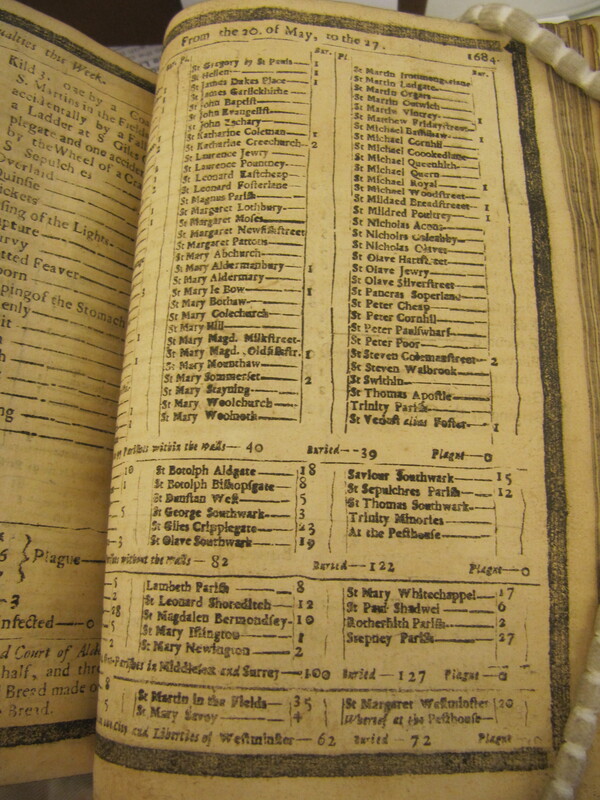 From the 20. of May, to the 27. 1684.
Bur. Pl. Bur.
St Gregory by St Pauls 1
St Hellen 1
St James Dukes Place 1
St James Garlickhithe
St John Baptist
St John Evangelist
St John Zachary
St Katharine Coleman 1
St Katharine Creechurch 2
St Laurence Jewry
St Laurence Pountney
St Leonard Eastcheap
St Leonard Fosterlane
St Magnus Parish
St Margaret Lothbury
St Margaret Moses
St Margaret Newfishstreet
St Margaret Pattons
St Mary Abchurch
St Mary Aldermanbury 1
St Mary Aldermary
St Mary le Bow 1
St Mary Bothaw
St Mary Colechurch
St Mary Hill
St Mary Magd. Milkstreet
St Mary Magd. Oldfishstr. 1
St Mary Mounthaw
St Mary Sommerset 2
St Mary Stayning
St Mary Woolchurch
St Mary Woolnoth
St Martin Ludgate
St Martin Orgars
St Martin Outwich
St Martin Vintrey 1
St Matthew Fridaystreet
St Michael Bassishaw 1
St Michael Cornhil
St Michael Crookedlane
St Michael Queenhith
St Michael Quern
St Michael Royal 1
St Michael Woodstreet
St Mildred Breadstreet 1
St Mildred Poultrey 1
St Nicholas Acons
St Nicholas Coleabby
St Nicholas Olaves
St Olave Hartstreet
St Olave Jewry
St Olave Silverstreet
St Pancras Soperlane
St Peter Cheap
St Peter Cornhil
St Peter Paulswharf
St Peter Poor
St Steven Colemanstreet 2
St Steven Walbrook
St Swithin
St Thomas Apostle
Trinity Parish
St Vedast alias Foster 1
Parishes within the Walls 40 Buried 39 Plague 0
St Botolph Aldgate 18
St Botolph Bishopsgate 8
St Dunstan West 5
St George Southwark 3
St Giles Cripplegate 23
St Olave Southwark 19
Saviour Southwark 15
St Sepulchres Parish 12
St Thomas Southwark
Trinity Minories
At the Pesthouse
without the Walls 82 Buried 122 Plague 0
Lambeth Parish 8
St Leonard Shoreditch 12
St Magdalen Bermondsey 10
St Mary Islington 1
St Mary Newington 2
St Mary Whitechappel 17
St Paul Shadwel 6
Rotherhith Parish 2
Stepney Parish 27
Parishes in Middlesex and Surrey 100 Buried 127 Plague 0
St Martin in the Fields 35
St Mary Savoy 4
St Margaret Westminster 20
Whereof at the Pesthouse
City and Liberties of Westminster 62 Buried 72
this Week.
S. Martins in the Field
accidentally by a Fall
a Ladder at S. Giles
plegate and one accidentally
by the Wheel of a
Overlaid
Feaver
of the Stomach
Plague